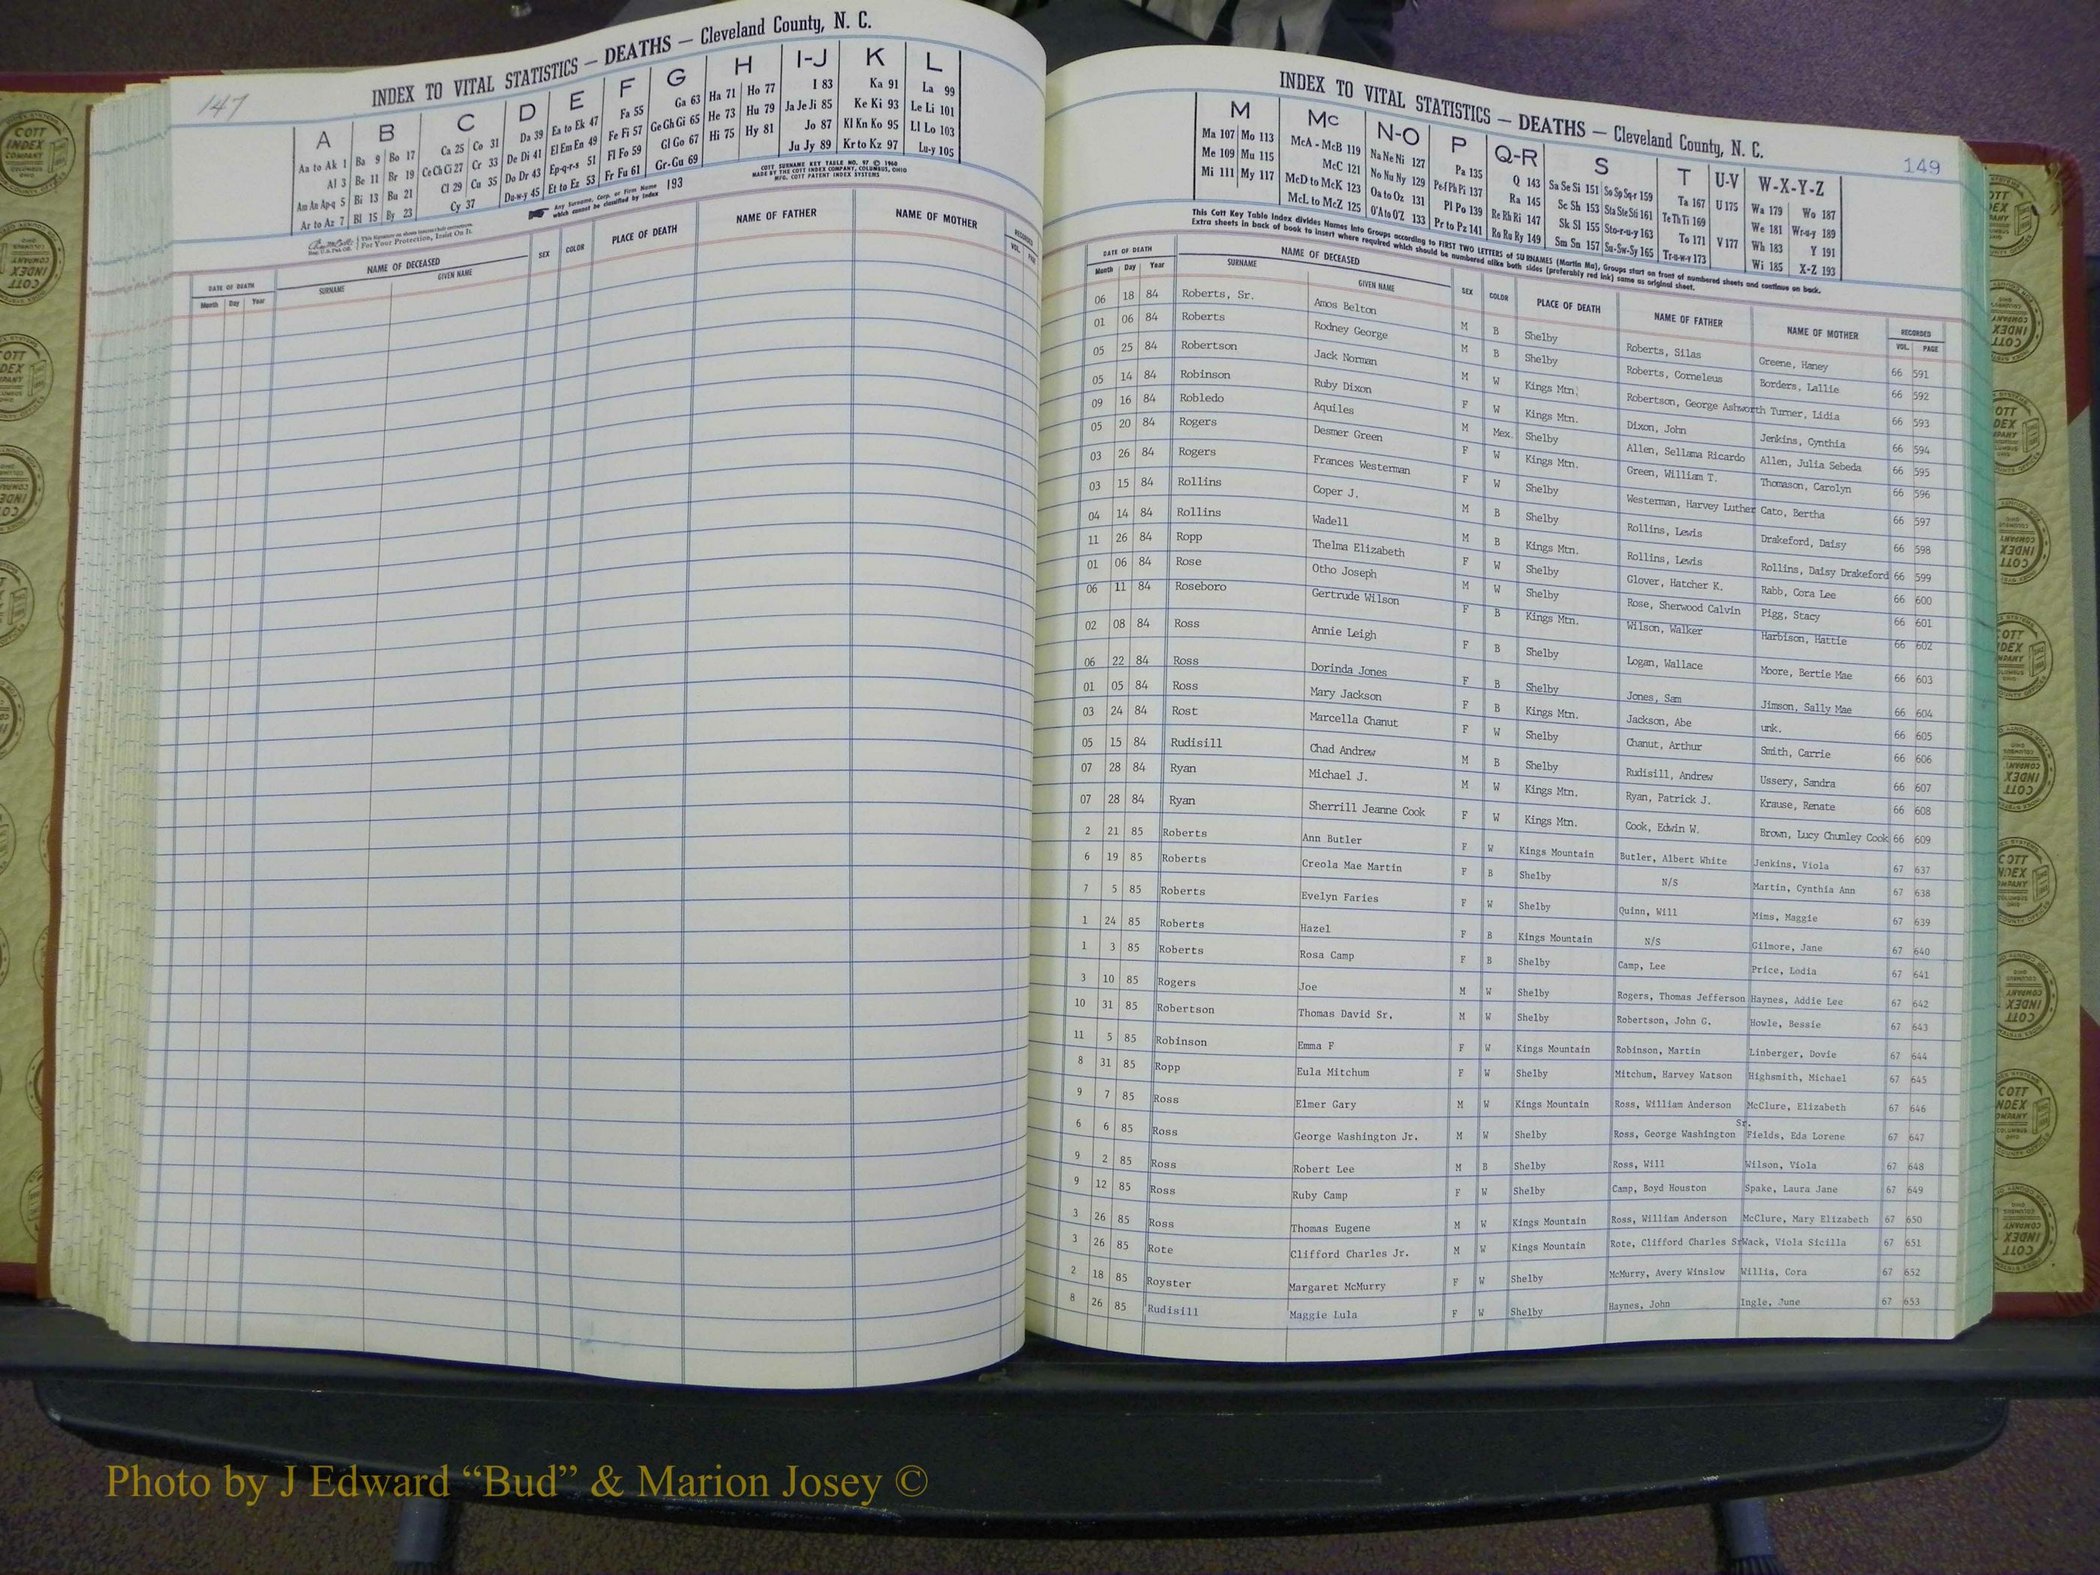 147
INDEX TO VITAL STATISTICS — DEATHS — Cleveland County, N. C.
A B C D E F G H I-J K L
Aa to Ak 1 Ba 9 Bo 17 Ca 25 Co 31 Da 39 Ea to Ek 47 Fa 55 Ga 63 Ha 71 Ho 77 I 83 Ka 91 La 99
Al 3 Be 11 Br 19 Ce Ch Ci 27 Cr 33 De Di 41 El Em En 49 Fe Fi 57 Ge Gh Gi 65 He 73 Hu 79 Ja Je Ji 85 Ke Ki 93 Le Li 101
Am An Ap-q 5 Bi 13 Bu 21 Cl 29 Cu 35 Do Dr 43 Ep-q-r-s 51 Fl Fo 59 Gl Go 67 Hi 75 Hy 81 Jo 87 Kl Kn Ko 95 Ll Lo 103
Ar to Az 7 Bl 15 By 23 Cy 37 Du-w-y 45 Et to Ez 53 Fr Fu 61 Gr-Gu 69 Ju Jy 89 Kr to Kz 97 Lu-y 105
COTT SURNAME KEY TABLE NO. 97 © 1960
MADE BY THE COTT INDEX COMPANY, COLUMBUS, OHIO
MFG. COTT PATENT INDEX SYSTEMS
Any Surname, Corp. or Firm Name which cannot be classified by Index 193
For Your Protection, Insist On It.
DATE OF DEATH NAME OF DECEASED SEX COLOR PLACE OF DEATH NAME OF FATHER NAME OF MOTHER RECORDED
Month Day Year SURNAME GIVEN NAME VOL. PAGE
INDEX TO VITAL STATISTICS — DEATHS — Cleveland County, N. C.
149
M Mc N-O P Q-R S T U-V W-X-Y-Z
Ma 107 Mo 113 McA - McB 119 Na Ne Ni 127 Pa 135 Q 143 Sa Se Si 151 So Sp Sq-r 159 Ta 167 U 175 Wa 179 Wo 187
Me 109 Mu 115 McC 121 No Nu Ny 129 Pe-f Ph Pi 137 Ra 145 Sc Sh 153 Sta Ste Sti 161 Te Th Ti 169 We 181 Wr-u-y 189
Mi 111 My 117 McD to McK 123 Oa to Oz 131 Pl Po 139 Re Rh Ri 147 Sk Sl 155 Sto-r-u-y 163 To 171 V 177 Wh 183 Y 191
McL to McZ 125 O'A to O'Z 133 Pr to Pz 141 Ro Ru Ry 149 Sm Sn 157 Su-Sw-Sy 165 Tr-u-w-y 173 Wi 185 X-Z 193
This Cott Key Table Index divides Names into Groups according to FIRST TWO LETTERS of SURNAMES (Martin Ma), Groups start on front of numbered sheets and continue on back.
Extra sheets in back of book to insert where required which should be numbered alike both sides (preferably red ink) same as original sheet.
DATE OF DEATH NAME OF DECEASED SEX COLOR PLACE OF DEATH NAME OF FATHER NAME OF MOTHER RECORDED
Month Day Year SURNAME GIVEN NAME VOL. PAGE
06 18 84 Roberts, Sr. Amos Belton M B Shelby Roberts, Silas Greene, Haney 66 591
01 06 84 Roberts Rodney George M B Shelby Roberts, Corneleus Borders, Lallie 66 592
05 25 84 Robertson Jack Norman M W Kings Mtn. Robertson, George Ashworth Turner, Lidia 66 593
05 14 84 Robinson Ruby Dixon F W Kings Mtn. Dixon, John Jenkins, Cynthia 66 594
09 16 84 Robledo Aquiles M Mex. Shelby Allen, Sellama Ricardo Allen, Julia Sebeda 66 595
05 20 84 Rogers Desmer Green F W Kings Mtn. Green, William T. Thomason, Carolyn 66 596
03 26 84 Rogers Frances Westerman F W Shelby Westerman, Harvey Luther Cato, Bertha 66 597
03 15 84 Rollins Coper J. M B Shelby Rollins, Lewis Drakeford, Daisy 66 598
04 14 84 Rollins Wadell M B Kings Mtn. Rollins, Lewis Rollins, Daisy Drakeford 66 599
11 26 84 Ropp Thelma Elizabeth F W Shelby Glover, Hatcher K. Rabb, Cora Lee 66 600
01 06 84 Rose Otho Joseph M W Shelby Rose, Sherwood Calvin Pigg, Stacy 66 601
06 11 84 Roseboro Gertrude Wilson F B Kings Mtn. Wilson, Walker Harbison, Hattie 66 602
02 08 84 Ross Annie Leigh F B Shelby Logan, Wallace Moore, Bertie Mae 66 603
06 22 84 Ross Dorinda Jones F B Shelby Jones, Sam Jimson, Sally Mae 66 604
01 05 84 Ross Mary Jackson F B Kings Mtn. Jackson, Abe unk. 66 605
03 24 84 Rost Marcella Chanut F W Shelby Chanut, Arthur Smith, Carrie 66 606
05 15 84 Rudisill Chad Andrew M B Shelby Rudisill, Andrew Ussery, Sandra 66 607
07 28 84 Ryan Michael J. M W Kings Mtn. Ryan, Patrick J. Krause, Renate 66 608
07 28 84 Ryan Sherrill Jeanne Cook F W Kings Mtn. Cook, Edwin W. Brown, Lucy Chumley Cook 66 609
2 21 85 Roberts Ann Butler F W Kings Mountain Butler, Albert White Jenkins, Viola 67 637
6 19 85 Roberts Creola Mae Martin F B Shelby N/S Martin, Cynthia Ann 67 638
7 5 85 Roberts Evelyn Faries F W Shelby Quinn, Will Mims, Maggie 67 639
1 24 85 Roberts Hazel F B Kings Mountain N/S Gilmore, Jane 67 640
1 3 85 Roberts Rosa Camp F B Shelby Camp, Lee Price, Lodia 67 641
3 10 85 Rogers Joe M W Shelby Rogers, Thomas Jefferson Haynes, Addie Lee 67 642
10 31 85 Robertson Thomas David Sr. M W Shelby Robertson, John G. Howle, Bessie 67 643
11 5 85 Robinson Emma F F W Kings Mountain Robinson, Martin Linberger, Dovie 67 644
8 31 85 Ropp Eula Mitchum F W Shelby Mitchum, Harvey Watson Highsmith, Michael 67 645
9 7 85 Ross Elmer Gary M W Kings Mountain Ross, William Anderson McClure, Elizabeth 67 646
6 6 85 Ross George Washington Jr. M W Shelby Ross, George Washington Sr. Fields, Eda Lorene 67 647
9 2 85 Ross Robert Lee M B Shelby Ross, Will Wilson, Viola 67 648
9 12 85 Ross Ruby Camp F W Shelby Camp, Boyd Houston Spake, Laura Jane 67 649
3 26 85 Ross Thomas Eugene M W Kings Mountain Ross, William Anderson McClure, Mary Elizabeth 67 650
3 26 85 Rote Clifford Charles Jr. M W Kings Mountain Rote, Clifford Charles Sr Wack, Viola Sicilla 67 651
2 18 85 Royster Margaret McMurry F W Shelby McMurry, Avery Winslow Willis, Cora 67 652
8 26 85 Rudisill Maggie Lula F W Shelby Haynes, John Ingle, June 67 653
Photo by J Edward “Bud” & Marion Josey ©